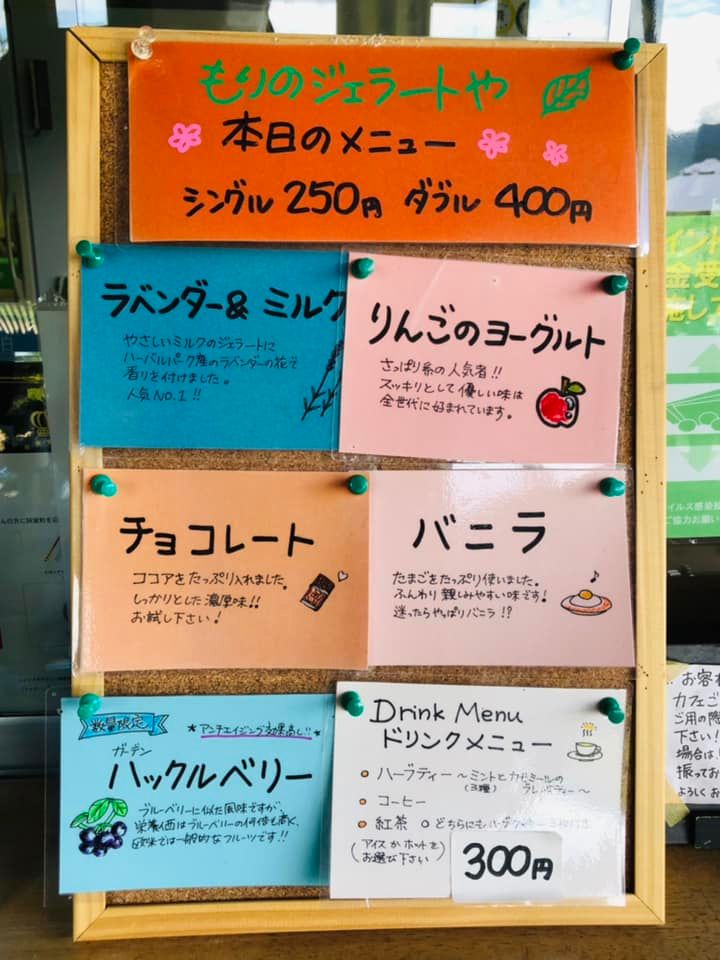 もりのジェラートや
本日のメニュー
シングル 250円 ダブル 400円
ラベンダー& ミルク
やさしいミルクのジェラートに
ハーバルパーク産のラベンダーの花で
香りを付けました。
人気NO.1!!
りんごのヨーグルト
さっぱり系の人気者!!
スッキリとして優しい味は
全世代に好まれています。
チョコレート
ココアをたっぷり入れました。
しっかりとした濃厚味!!
お試し下さい!
バニラ
たまごをたっぷり使いました。
ふんわり親しみやすい味です!
迷ったらやっぱりバニラ!?
数量限定
*アンチエイジング効果高し!!*
ガーデン
ハックルベリー
ブルーベリーに似た風味ですが、
栄養価はブルーベリーの何倍も高く、
欧米では一般的なフルーツです!!
Drink Menu
ドリンクメニュー
ハーブティー 〜ミントとカモミールの
(3種) ブレンドティー〜
コーヒー
紅茶 どちらにも
(アイスかホットを
お選び下さい)
300円
お客
カフェご
ご用の際
下さい!
場合は
振ってお
よろしくお
イント
金受
施し
イルス感染
ご協力お願い